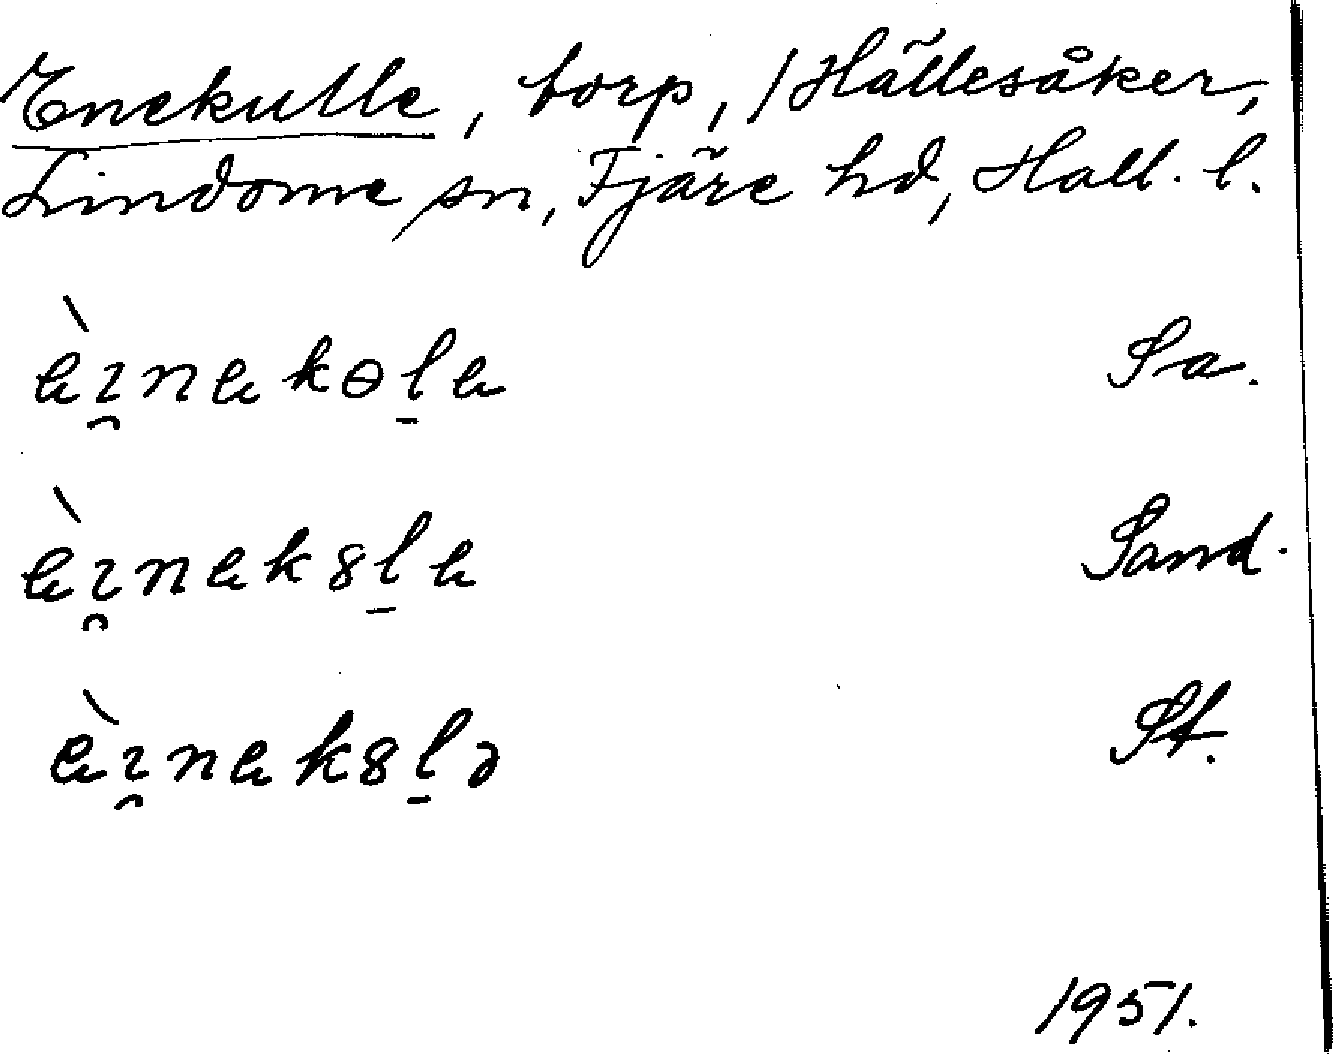 Enekulle, torp, / Hällesåker,
Lindome sn, Fjäre hd, Hall. l.
èı̯nekɵl̠e Sa.
èı̯nek8l̠e Sand.
èı̯nek8l̠ə St.
1951.